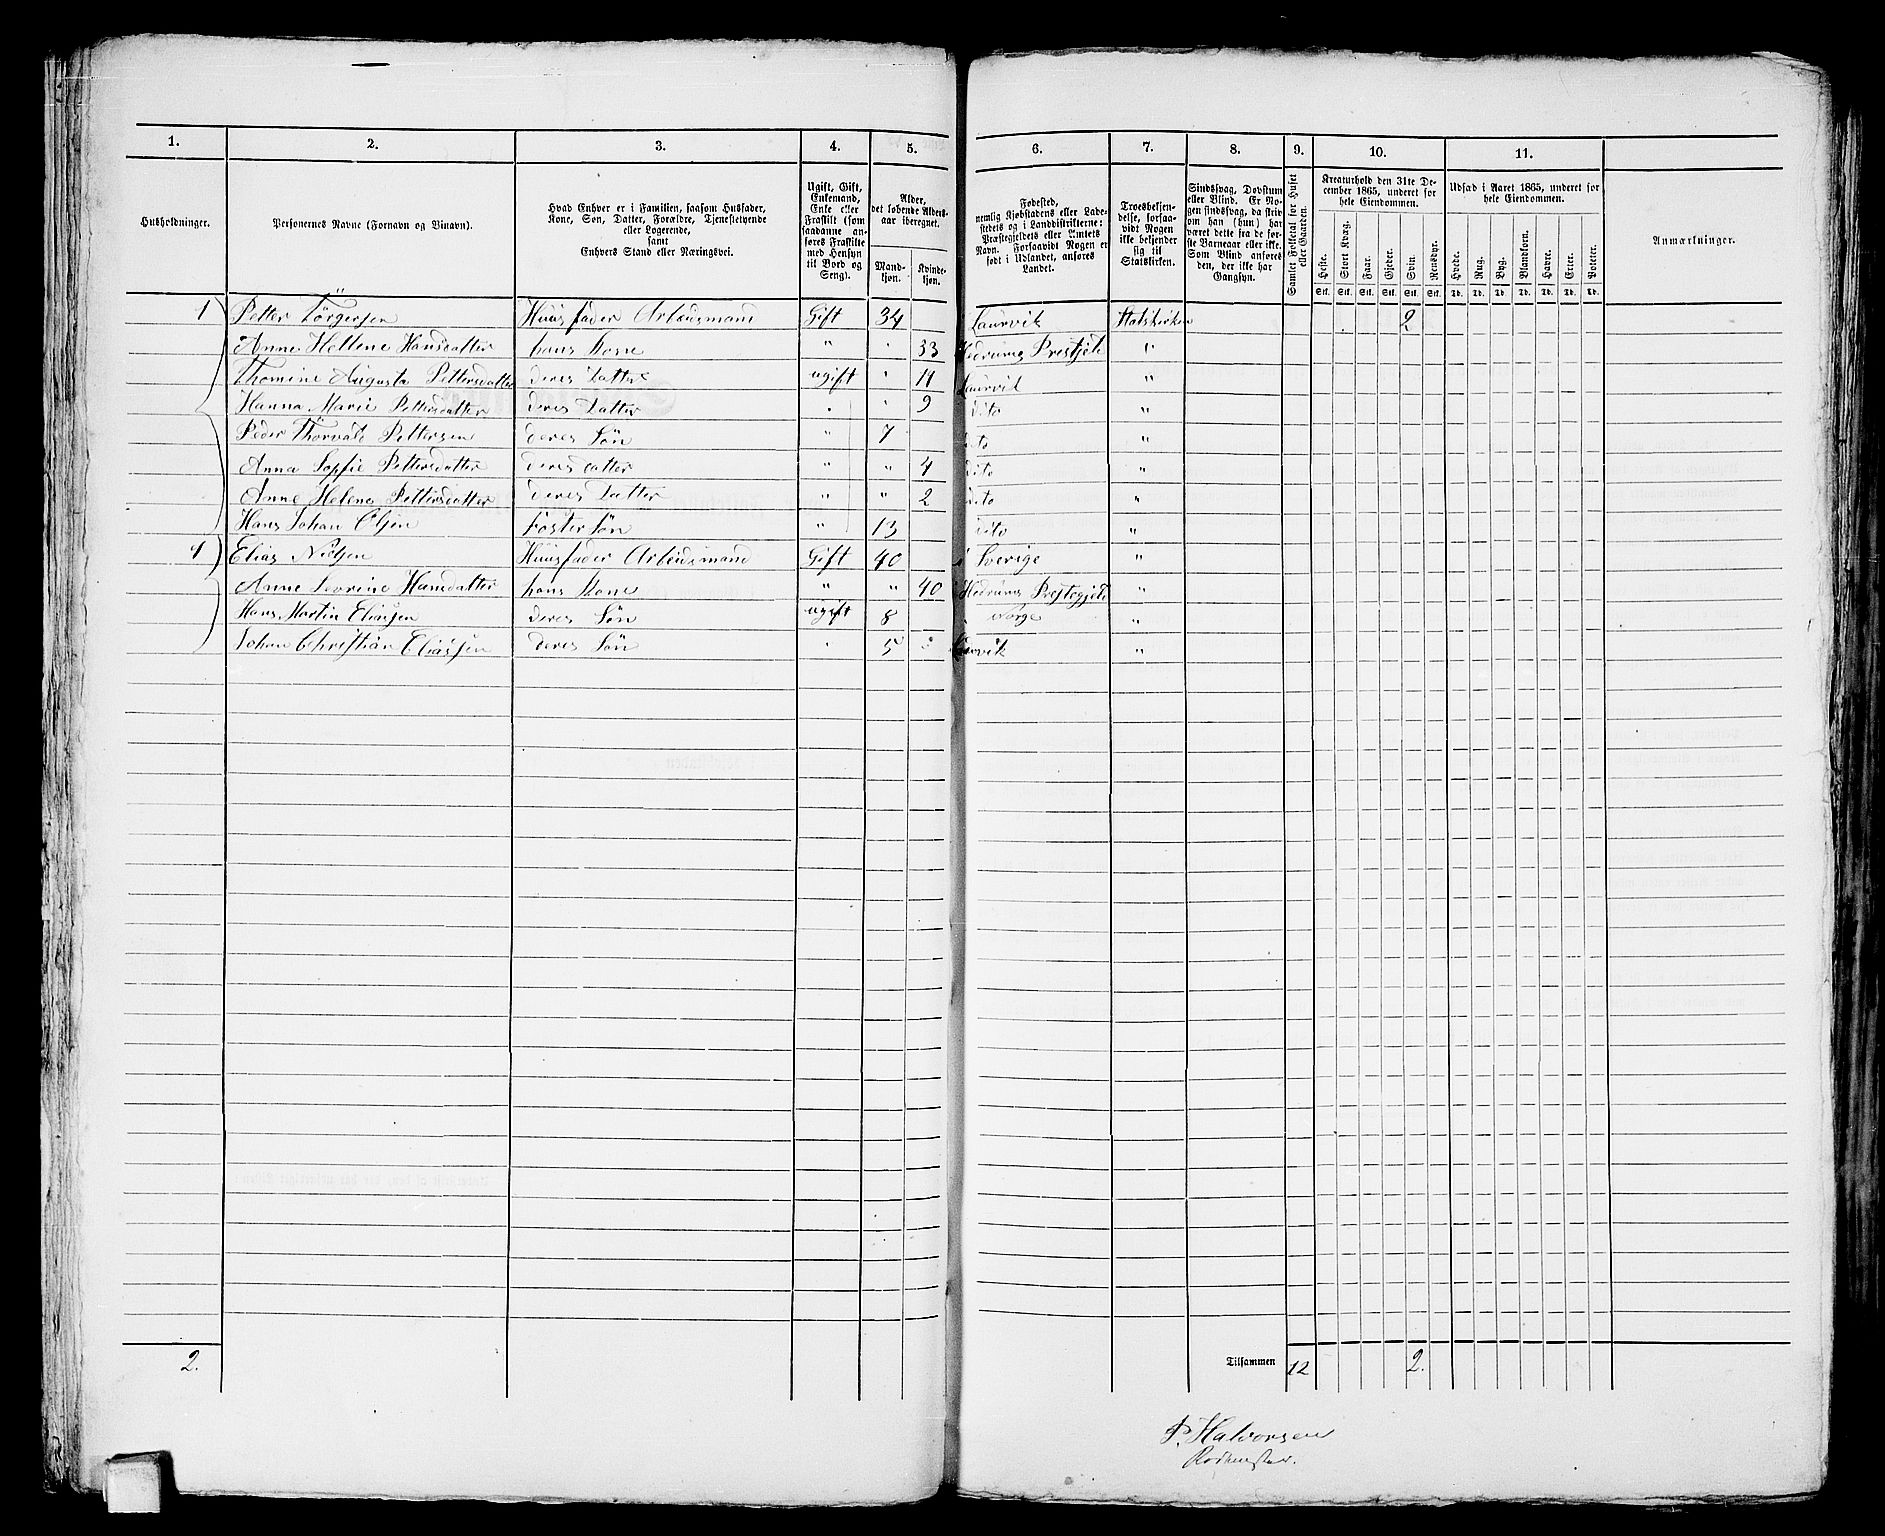 1. 2. 3. 4. 5. 6. 7. 8. 9. 10. 11.
Husholdninger.
Personernes Navne (Fornavn og Binavn).
Hvad Enhver er i Familien, saasom Husfader,
Kone, Søn, Datter, Forældre, Tjenestetyende
eller Logerende,
samt
Enhvers Stand eller Næringsvei.
Ugift, Gift,
Enkemand,
Enke eller
Fraskilt (som
saadanne an-
føres Fraskilte
med Hensyn
til Bord og
Seng).
Alder,
det løbende Alders-
aar iberegnet.
Mand-
kjøn.
Kvinde-
kjøn.
Fødested,
nemlig Kjøbstadens eller Lade-
stedets og i Landdistrikterne:
Præstegjeldets eller Amtets
Navn. Forsaavidt Nogen er
født i Udlandet, anføres
Landet.
Troesbekjen-
delse, forsaa-
vidt Nogen
ikke bekjender
sig til
Statskirken.
Sindssvag, Døvstum
eller Blind. Er No-
gen sindssvag, da skriv
om han (hun) har
været dette fra de før-
ste Barneaar eller ikke.
Som Blind anføres
den, der ikke har
Gangsyn.
Gamlet Folketal for Huset
eller Gaarden.
Kreaturhold den 31te De-
cember 1865, underet for
hele Eiendommen.
Heste. Stort Kvæg. Faar. Gjeder. Svin. Rensdyr.
Stk. Stk. Stk. Stk. Stk. Stk.
Udsæd i Aaret 1865, underet for
hele Eiendommen.
Hvede. Rug. Byg. Blandkorn. Havre. Erter. Poteter.
Td. Td. Td. Td. Td. Td. Td.
Anmærkninger.
1 Petter Törgersen Huusfader Arbeidsmand Gift 34 Laurvik Statskirken 2
Anne Hellene Hansdatter hans Kone " " 33 Hedrums Prestjeld "
Thomine Augusta Pettersdatter deres Datter ugift " 11 Laurvik "
Hanna Marie Pettersdatter deres Datter " " 9 dito "
Peder Thorvald Pettersen deres Søn " 7 dito "
Anna Sopfie Pettersdatter deres datter " " 4 dito "
Anne Helene Pettersdatter deres Datter " " 2 dito "
Hans Johan Olsen Fostersøn " 13 dito "
1 Elias Nielsen Huusfader Arbeidsmand Gift 40 i Sverige "
Anne Sevrine Hansdatter hans Kone " " 40 Hedrums Prestegjeld "
Hans Martin Eliassen deres Søn ugift 8 Norge "
Johan Christian Eliassen deres Søn " 5 " Laurvik "
2. Tilsammen 12 2.
P. Halvorsen
Rodemester.